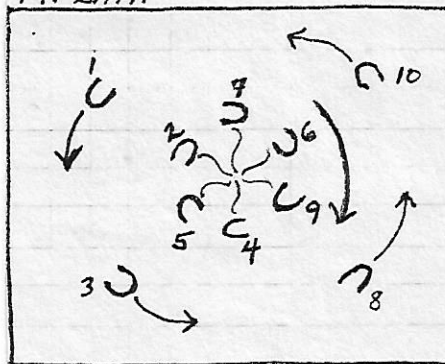 1
7
10
2
6
9
5
4
3
8